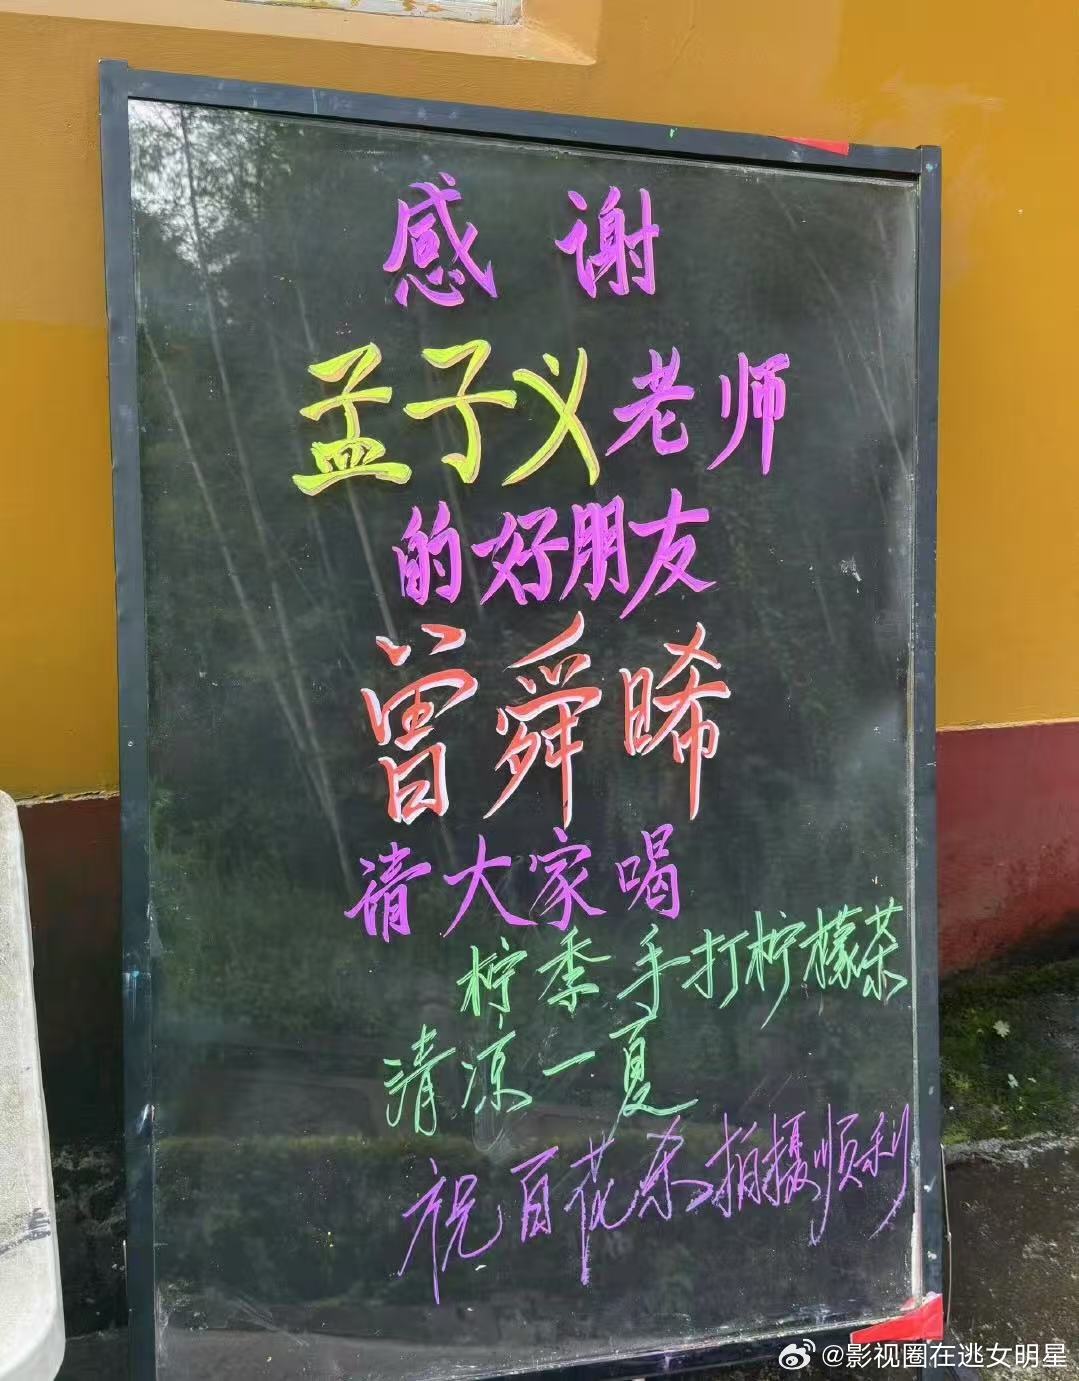 感谢
孟子义老师
的好朋友
曾舜晞
请大家喝
柠季手打柠檬茶
清凉一夏
祝百花杀拍摄顺利
@影视圈在逃女明星